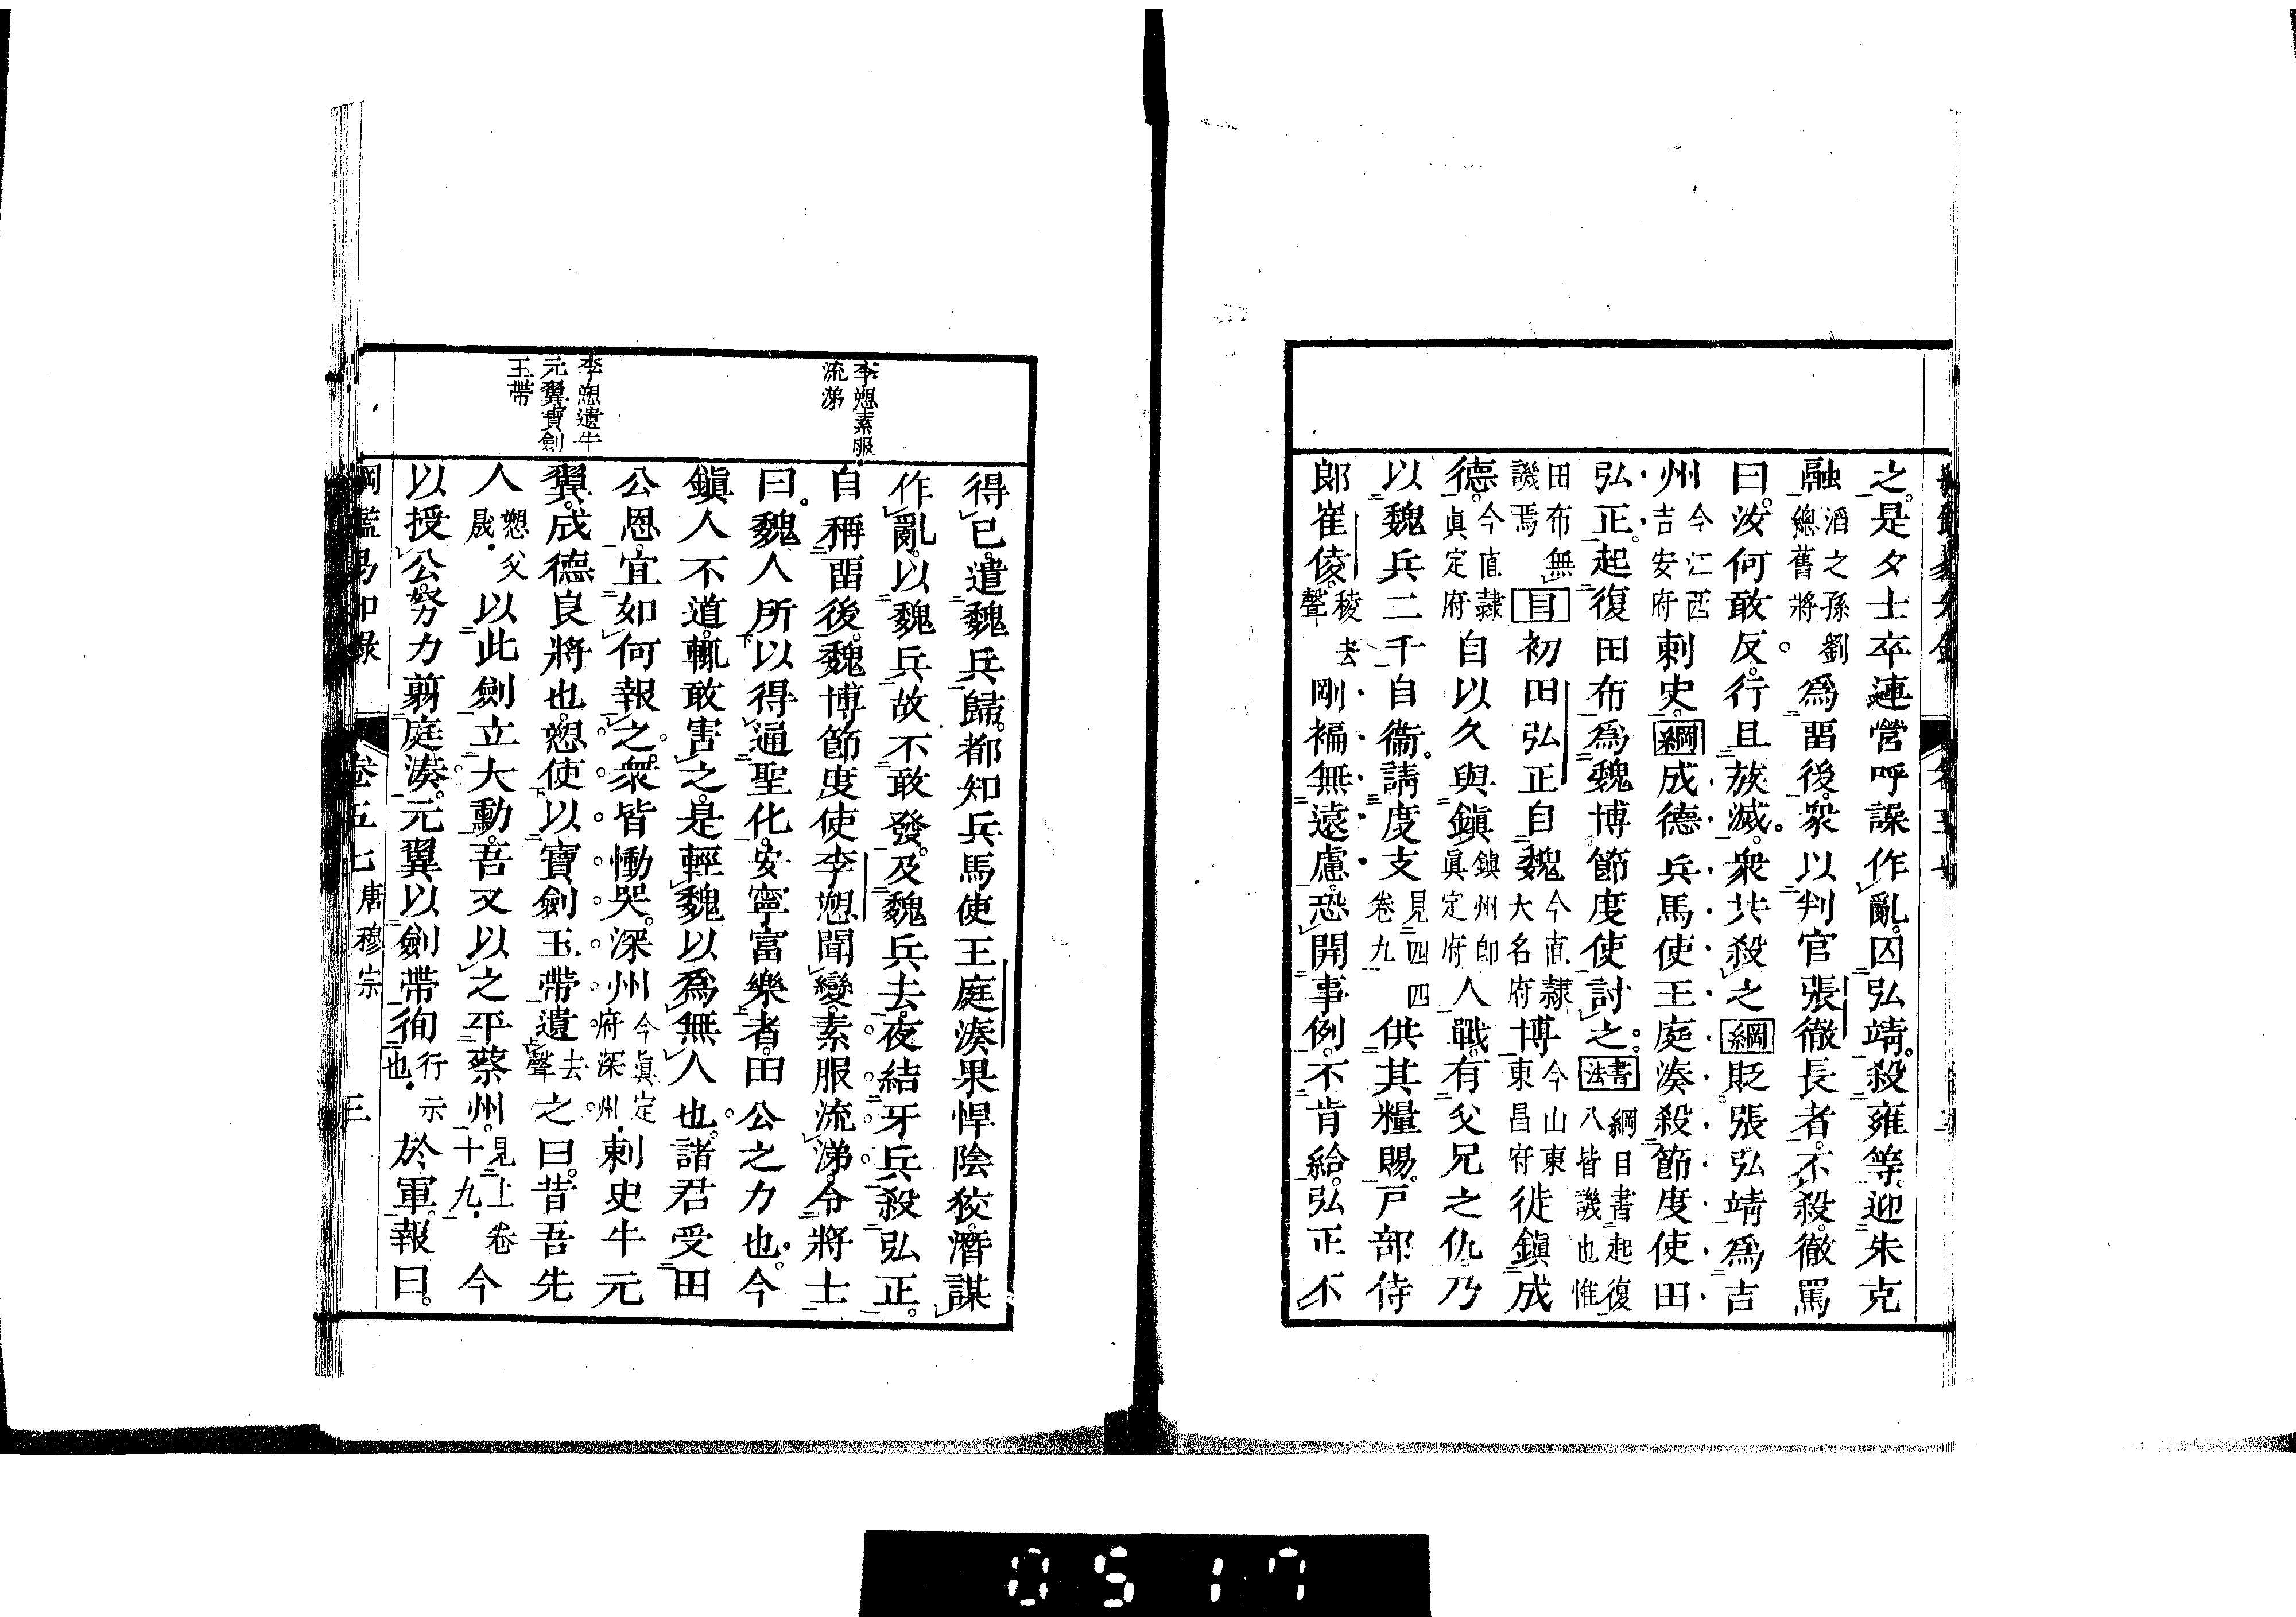 之。是夕士卒連營呼譟作亂。囚弘靖。殺雍等。迎朱克
融滔之孫劉總舊將爲畱後。衆以判官張徹長者。不殺。徹罵
曰。汝何敢反。行且族滅。衆共殺之綱貶張弘靖爲吉
州今江西吉安府刺史。綱成德兵馬使王庭湊殺節度使田
弘正。起復田布爲魏博節度使討之。書法綱目書起復八皆譏也惟
田布無譏焉目初田弘正自魏今直隸大名府博今山東東昌府徙鎭成
德。今直隸眞定府自以久與鎭鎮州即眞定府人戰。有父兄之仇乃
以魏兵二千自衞。請度支見四四卷九供其糧賜。戸部侍
郎崔倰。稜去聲剛褊無遠慮。恐開事例。不肯給。弘正不
李愬素服流涕
李愬遺牛元翼寶劍玉帶
得已。遣魏兵歸。都知兵馬使王庭湊果悍陰狡。潛謀
作亂。以魏兵故不敢發。及魏兵去。夜結牙兵殺弘正。
自稱畱後。魏博節度使李愬聞變。素服流涕。令將士
曰。魏人所以得通聖化。安寧富樂者。田公之力也。今
鎭人不道。輒敢害之。是輕魏以爲無人也。諸君受田
公恩。宜如何報之。衆皆慟哭。深州今眞定府深州刺史牛元
翼。成德良將也。愬使以寶劍玉帶遺去聲之曰。昔吾先
人愬父晟以此劍立大勳。吾又以之平蔡州。見上卷十九今
以授公。努力翦庭湊。元翼以劍帶徇行示也於軍。報曰。
綱鑑易知錄 卷五七 唐穆宗 三
0517